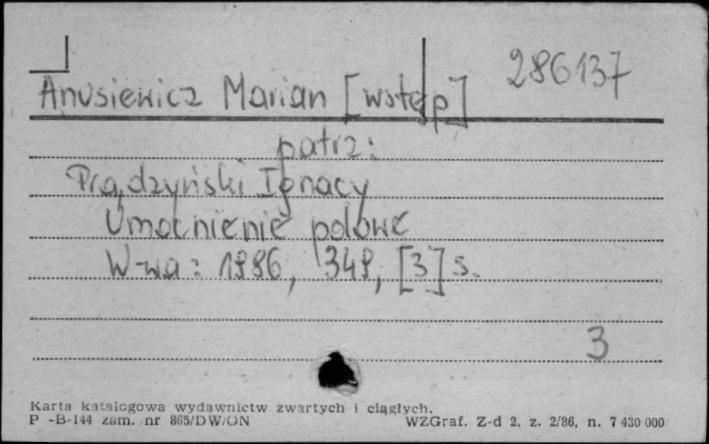 286137
Anusiewicz Marian [wstęp]
patrz:
Prądzyński Ignacy
Umocnienie polowe
W-wa: 1986, 349, [3] s.
3
Karta katalogowa wydawnictw zwartych i ciągłych.
P -B-144 zam. nr 865/DW/ON WZGraf. Z-d 2, z. 2/86, n. 7 430 000